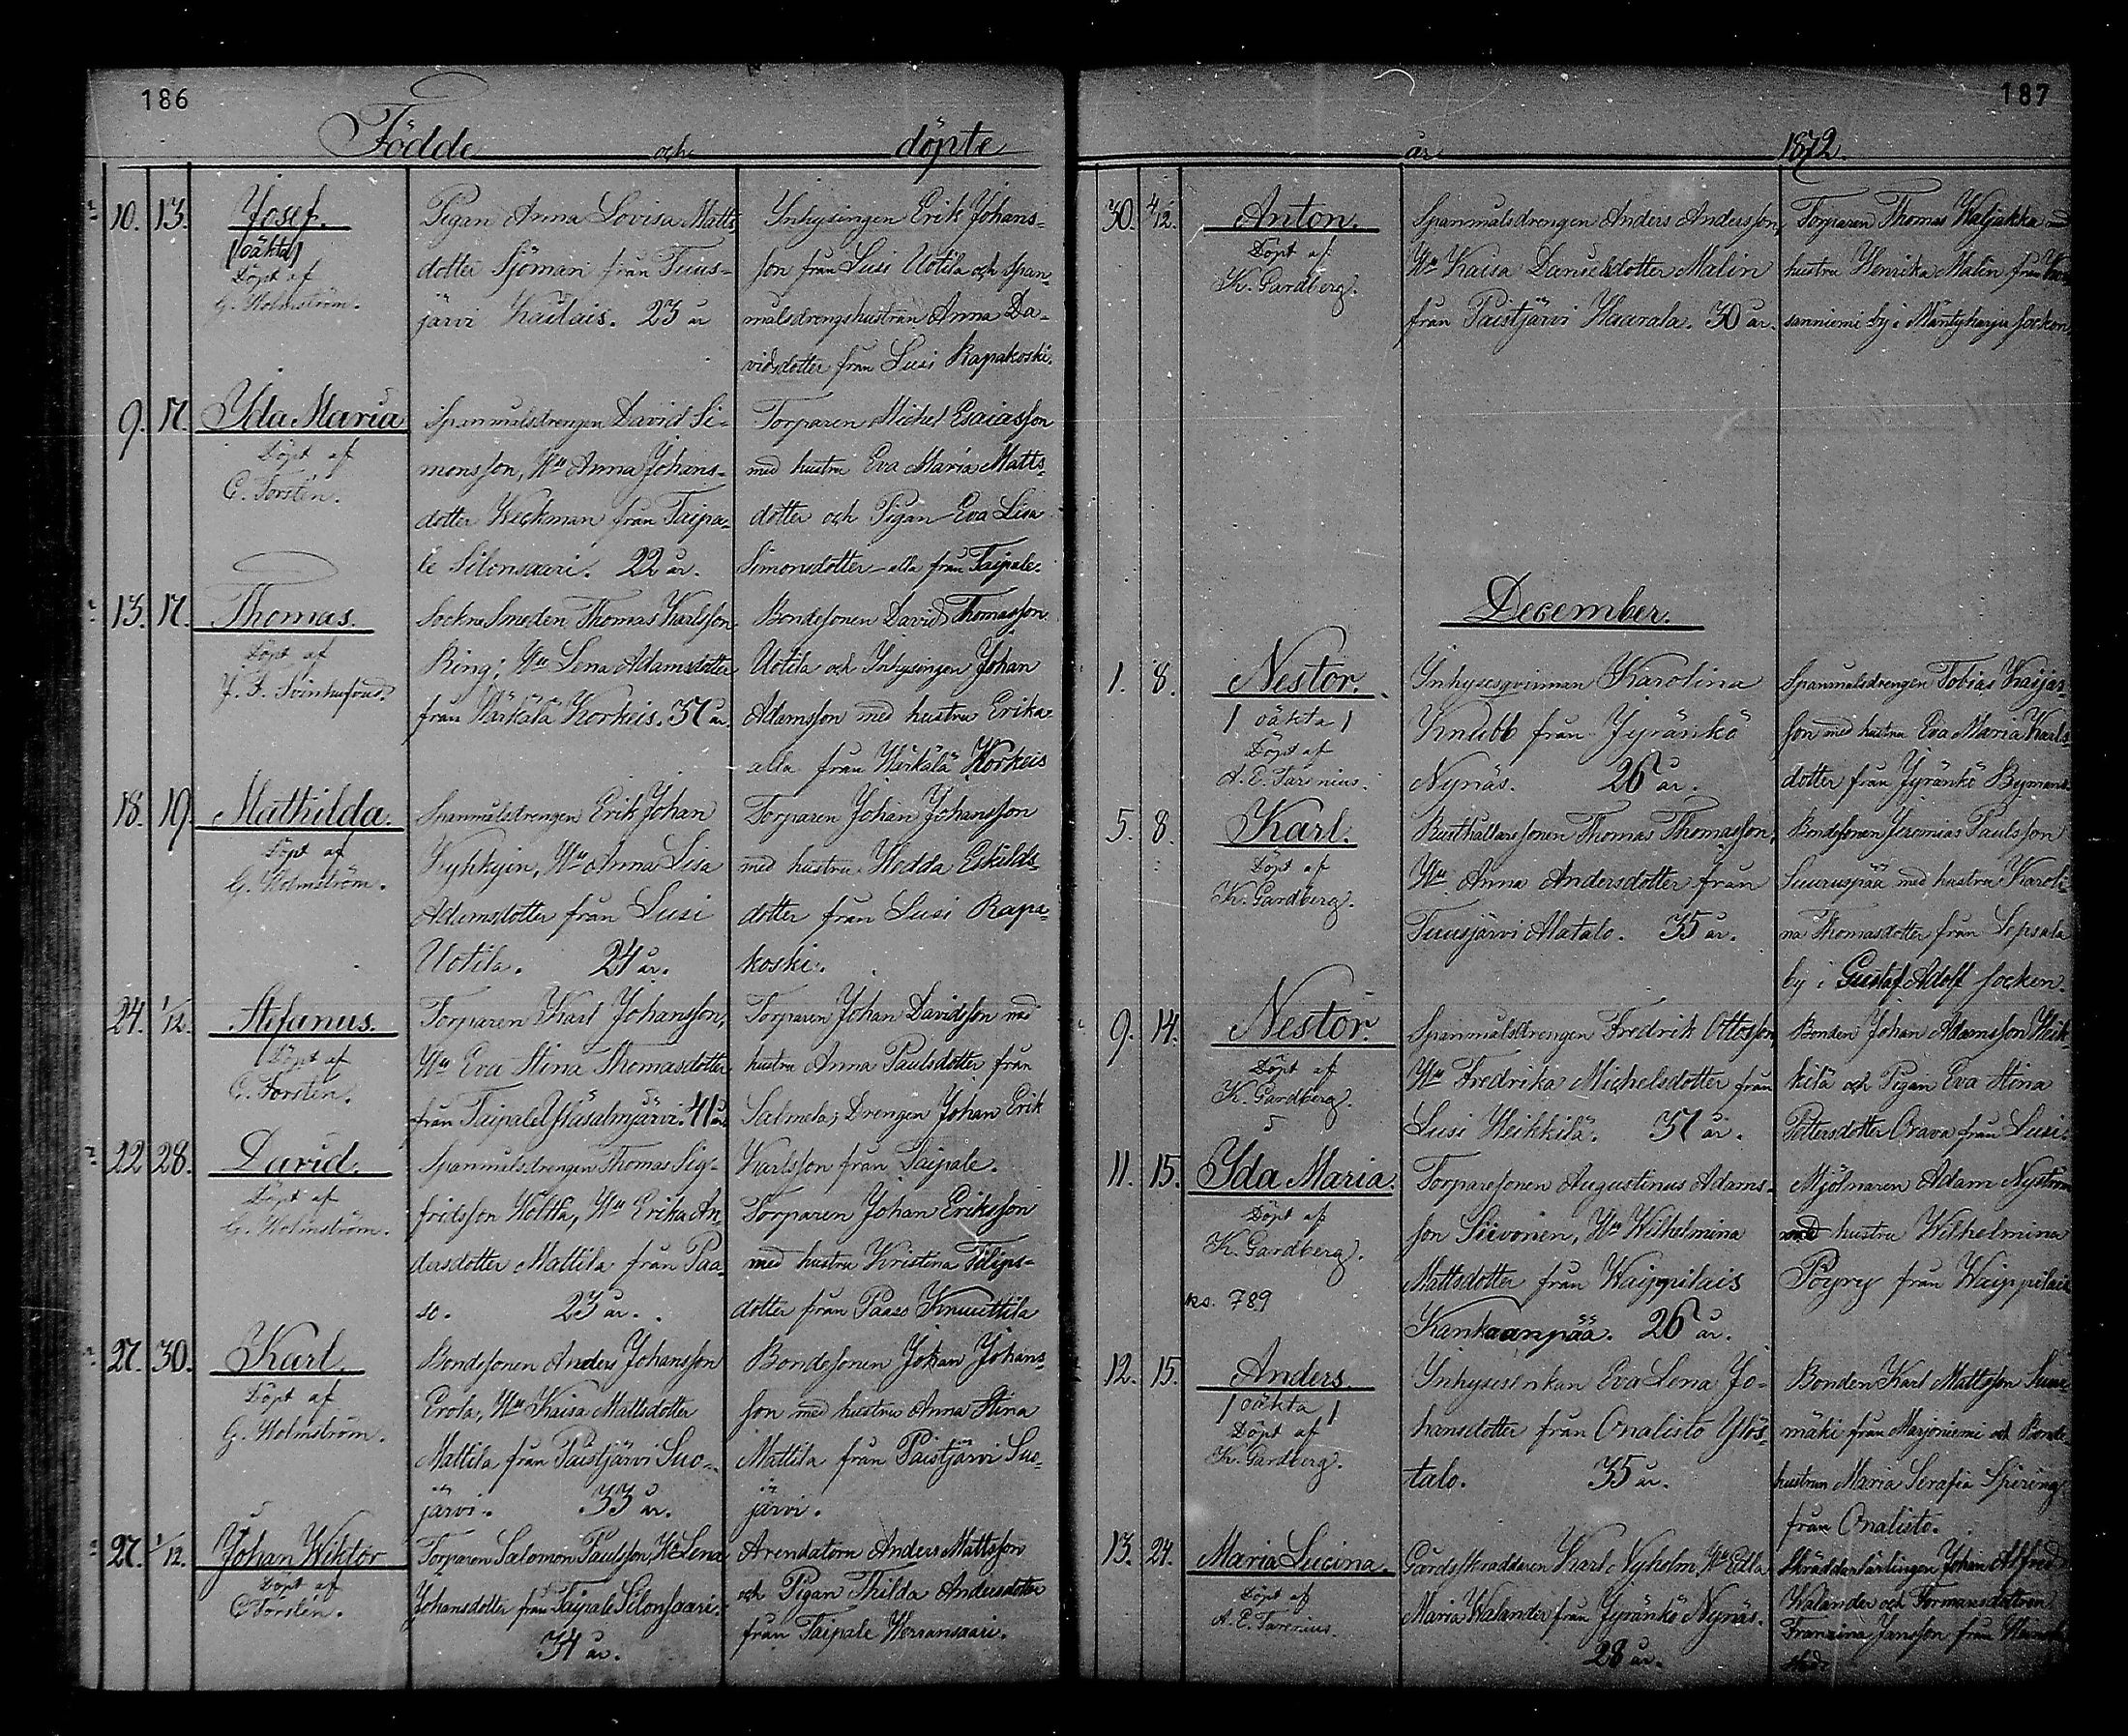 186
Födde och döpte
10. 13. Josef.
(oäkta)
Döpt af
G. Holmström.
Pigan Anna Lovisa Matts
dotter Sjöman från Tuus-
järvi Kailais. 23 år
Ynhysingen Erik Johans-
son från Lusi Uotila och Span-
målsdrengshustrun Anna Da-
vidsdotter från Lusi Rapakoski.
9. 17. Ida Maria
Döpt af
C. Forstén.
Spanmålsdrengen David Si-
monsson, Hu Anna Johans-
dotter Weckman från Taipa-
le Silonsaari. 22 år.
Torparen Michel Esaiasson
med hustru Eva Maria Matts-
dotter och Pigan Eva Lisa
Simonsdotter alla från Taipale.
13. 17. Thomas.
Döpt af
Sockne Smeden Thomas Karlsson
Ring; Hu Lena Adamsdotter
från Härkälä Korkeis. 37 år.
Bondesonen David Thomasson
Uotila och Ynhysingen Johan
Adamsson med hustru Erika
alla från Härkälä Korkeis
18. 19. Mathilda.
Döpt af
G. Holmström.
Spanmålsdrengen Erik Johan
Kyhkyin, Hu Anna Lisa
Adamsdotter från Lusi
Uotila. 24 år.
Torparen Johan Johansson
med hustru Hedda Eskilds-
dotter från Lusi Rapa-
koski.
24. 1/12. Stefanus.
Döpt af
C. Forstén.
Torparen Karl Johansson,
Hu Eva Stina Thomasdotter
från Taipale 41 år
Torparen Johan Davidsson med
hustru Anna Paulsdotter från
Salmela; Drengen Johan Erik
Karlsson från Taipale.
22 28. David.
Döpt af
G. Holmström.
Spanmålsdrengen Thomas Sig-
fridsson Woltta, Hu Erika An-
dersdotter Mattila från Paa-
so. 23 år.
Torparen Johan Eriksson
med hustru Kristina Filips-
dotter från Paaso Knuuttila
27. 30. Karl.
Döpt af
G. Holmström.
Bondesonen Anders Johansson
Erola, Hu Kaisa Mattsdotter
Mattila från Paistjärvi Suo-
järvi. 33 år.
Bondesonen Johan Johans-
son med hustru Anna Stina
Mattila från Paistjärvi Suo-
järvi.
27. 1/12. Johan Wiktor
Döpt af
C. Forstén.
Torparen Salomon Paulsson, Hu Lena
Johansdotter från Taipale Silonsaari.
34 år.
Arendatorn Anders Mattsson
och Pigan Thilda Andersdotter
från Taipale Herransaari.
187
år 1872.
30. 4/12. Anton.
Döpt af
K. Gardberg.
Spanmålsdrengen Anders Andersson,
Hu Kaisa Danielsdotter Malin
från Paistjärvi Haarala. 30 år.
Torparen Thomas Waljakka med
hustru Henrika Malin från
sanniemi by i Mäntyharju socken
December.
1. 8. Nestor.
/oäkta/
Döpt af
A. E. Farenius.
Ynhysesqvinnan Karolina
Knubb från Jyränkö
Nynäs. 26 år.
Spanmålsdrengen Tobias Kaijas-
son med hustru Eva Maria Karls-
dotter från Jyränkö Bymans.
5. 8. Karl.
Döpt af
K. Gardberg.
Rusthållaresonen Thomas Thomasson,
Hu Anna Andersdotter från
Tuusjärvi Alatalo. 35 år.
Bondesonen Jeremias Paulsson
Suuruspää med hustru Karoli-
na Thomasdotter från Sepsala
by i Gustaf Adolf socken.
9. 14. Nestor.
Döpt af
K. Gardberg.
Spanmålsdrengen Fredrik Ottosson,
Hu Fredrika Michelsdotter från
Lusi Heikkilä. 37 år.
Bonden Johan Adamsson Heik-
kilä och Pigan Eva Stina
Pettersdotter Orava från Lusi.
11. 15. Ida Maria.
Döpt af
K. Gardberg.
ks. 789
Torparesonen Augustinus Adams-
son Siivonen, Hu Wilhelmina
Mattsdotter från Waippilais
Kankaanpää. 26 år.
Mjölnaren Adam Nyström
med hustru Wilhelmina
Pöyry från Waippilais
12. 15. Anders.
/oäkta/
Döpt af
K. Gardberg.
Ynhysesenkan Eva Lena Jo-
hansdotter från Onalisto Ylös-
talo. 35 år.
Bonden Karl Mattsson
mäki från Marjoniemi och Bonde-
hustrun Maria Serafia Spiring
från Onalisto.
13. 24. Maria Lucina.
Döpt af
A. E. Farenius.
Gårdsskraddaren Karl Nyholm, Hu Edla
Maria Walander från Jyränkö Nynäs.
28 år.
Skräddarlärlingen Johan Alfred
Walander och Formansdottren
Franzina Jansson från
stad.